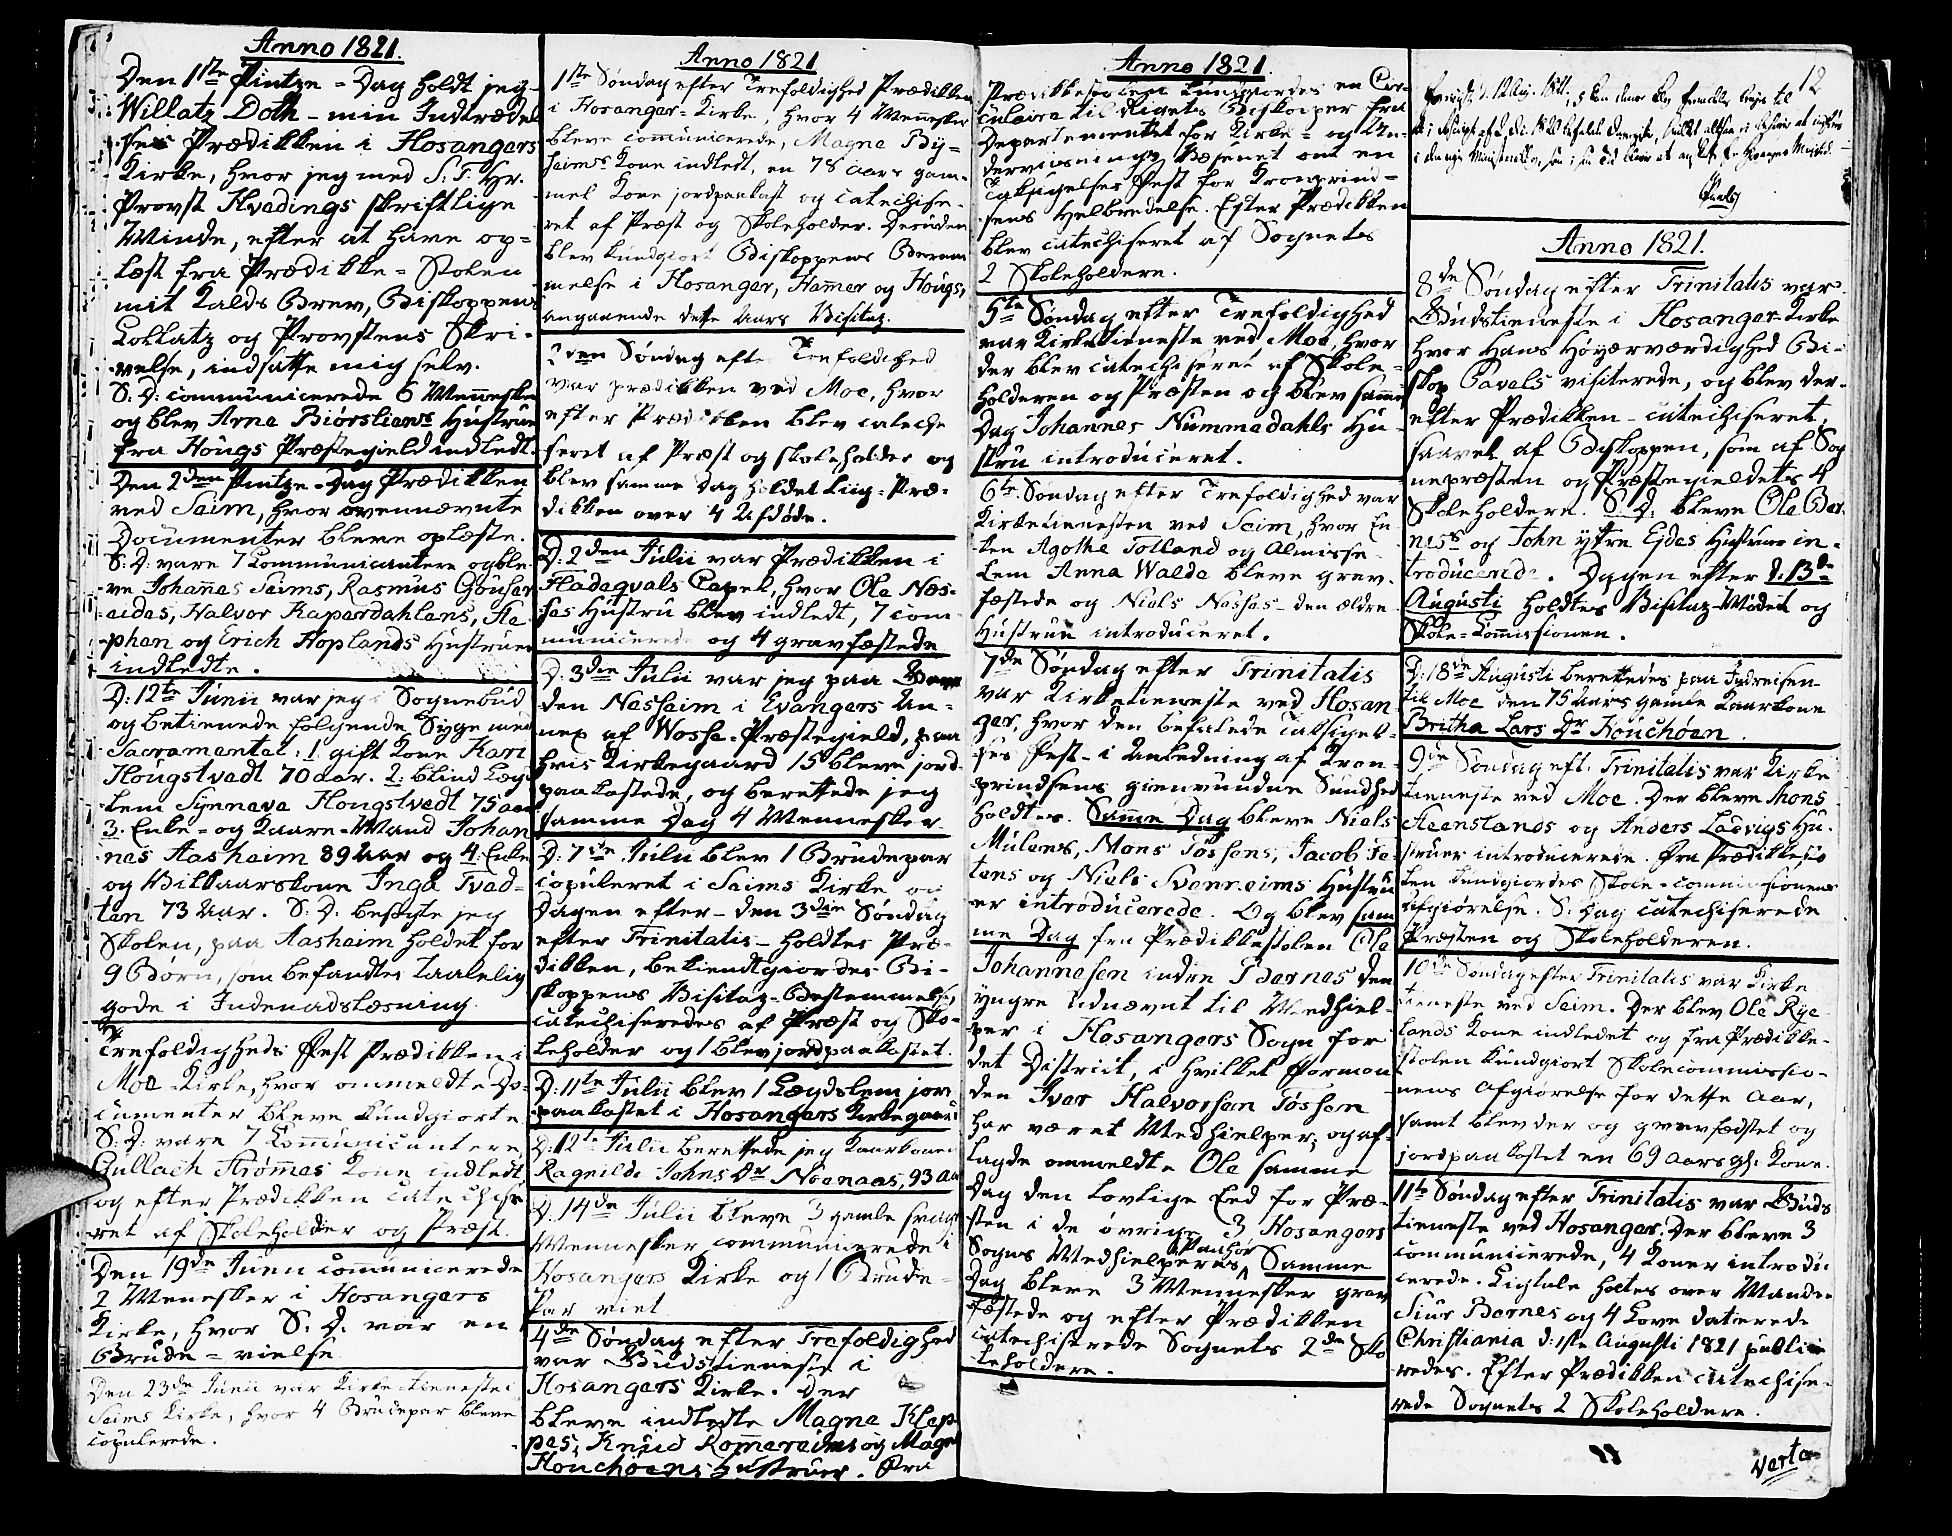 Anno 1821.
Den 1ste Pintze-Dag holdt jeg-
Willatz Doth - min Indtrædel
ses Prædikken i Hosangers
Kirke, hvor jeg med S: T: Hr.
Provst Hvadings skriftlige
Minde, efter at have op=
læst fra Prædikke=Stolen
mit Kalds Brev, Biskoppens
Collatz og Provstens Skri-
velse, indsatte mig selv.
S: D: communicerede 6 Mennesker
og blev Arne Biørsliens Hustrue
fra Hougs Præstegield indledt.
Den 2den Pintze-Dag Prædikken
ved Seim, hvor ovennævnte
Documenter bleve oplæste.
S: D: vare 7 Communicantere og ble-
ve Johannes Seims, Rasmus
eides, Halvor Kapardahlens, Ste-
phan og Erich Hoplands Hustruer
indledte.
D: 12te Junii var jeg i Sognebud
og betienede følgende Syge med
Sacramentet: 1. gift Kone Kari
Hougstvedt 70 aar. 2. blind Læg-
lem Synneva Hougstvedt 75 aar
3. Enke- og Kaare-Mand Johan
nes Aasheim 89 Aar og 4. Enke
og Vilkaarskone Inga Tvad-
ten 73 Aar. S: D: besøgte jeg
Skolen, paa Aasheim holdet for
9 Børn, som befandtes taalelig
gode i Indenadslæsning.
Trefoldigheds Fest Prædikken i
Moe-Kirke, hvor ommeldte Do-
cumenter bleve kundgiorte
S: D: vare 7 Communicantere,
Gullach Strømmes Kone indledt
og efter Prædikken catechise
ret af Skoleholder og Præst.
Den 19de Junii communicerede
2 Mennesker i Hosangers
Kirke, hvor S: D: var en
Brude=vielse
Den 23de Junii var Kirke-tieneste i
Seims Kirke, hvor 4 Brudepar bleve
copulerede.
Anno 1821
1ste Søndag efter Trefoldighed Prædikken
i Hosanger-Kirke, hvor 4 Mennesker
bleve communicerede, Magne By=
heims Kone indledt, en 78 aars gam-
mel Kone jordpaakast og catechise-
ret af Præst og Skoleholder. Desuden
blev kundgiort Biskoppens Beram
melse i Hosanger, Hammer og Hougs,
angaaende dette Aars Visitaz.
2den Søndag efter Trefoldighed
var prædikken ved Moe, hvor
efter Prædikken blev cateche
seret af Præst og skoleholder og
blev samme Dag holdet Liig-Præ-
dikken over 4 Afdøde.
D. 2den Julii var Prædikken i
Hadegvals Capel, hvor Ole Næs-
ses Hustru blev indledt, 7 com-
municerede og 4 gravfæstede
D. 3die Julii var jeg paa
den Nesheim i Evangers An-
nex af Wosse-Præstegield, paa
hvis Kirkegaard 15 bleve jord-
paakastede, og berettede jeg
samme Dag 4 Mennesker.
D: 7de Julii blev 1 Brudepar
copuleret i Seims Kirke og
Dagen efter- den 3die Søndag
efter Trinitatis- holdtes Præ-
dikken, bekiendtgiordes Bi-
skoppens Visitaz-Bestemmelse,
catechiseredes af Præst og Sko-
leholder og 1 blev jordpaakastet.
D: 11te Julii blev 1 Lægdslem jor
paakastet i Hosangers Kirkegaard
D: 12te Julii berettede jeg Kaarkonen
Ragnilde Johns Dr Noenaas, 93 Aar
D. 14de Julii bleve 3 gamle svage
Mennesker communicerede i
Hosangers Kirke og 1 Brude-
Par viet
4de Søndag efter Trefoldighed
var Budstieneste i
Hosangers Kirke. Der
bleve indledte Magne Klep-
pes, Knud Rommereims og Magne
Houchøens Hustruer. Fra
Anno 1821.
Prædikkestolen kundgiordes en Cir-
culaire til Rigets Biskoper fra
Departementet for Kirke- og Un-
derviisnings Væsenet om en
Taksigelses Fest for Kronprind-
sens Helbredelse. Efter Prædikken
blev catechiseret af Sognets
2 Skoleholdere.
5te Søndag efter Trefoldighed
var Kirketieneste ved Moe, hvor
der blev catechiseret af Skole-
holderen og Præsten og blev samme
Dag Johannes Nummedahls Hu-
stru introduceret.
6te Søndag efter Trefoldighed var
Kirketienesten ved Seim, hvor En
ken Agothe Tolland og Almisse-
lem Anna Walde bleve grav-
fæstede og Niels Nesses- den ældre
Hustrue introduceret.
7de Søndag efter Trinitatis
var Kirketieneste ved Hosan
ger, hvor den befalede Taksigel-
ses Fest- i Anledning af Kron-
prindsens gienvundne Sundhed
holdtes. Samme Dag bleve Niels
Mulens, Mons Tøssens, Jacob
tens og Niels Svenheims Hustru
er introducerede. Og blev sam
me Dag fra Prædikkestolen Ole
Johannesen indre Bernes den
yngre udnævnt til Medhiel-
per i Hosangers Sogn for
det District, i hvilket Forman-
den Iver Halvorsen Tøssen
har været Medhielper, og af-
lagde ommeldte Ole samme
Dag den lovlige Eed for Præ-
sten i de øvrige 3 Hosangers
Sogns Medhielperes Paahør. Samme
Dag bleve 3 Mennesker grav
fæstede og efter Prædikken
catechiserede Sognets 2de Sko
leholdere.
12
Anno 1821.
8de Søndag efter Trinitatis var
Budstieneste i Hosanger-Kirke
hvor Hans Høyærværdighed Bi-
skop Pavels visiterede, og blev der-
efter Prædikken catechiseret,
saavel af Biskoppen, som af Sog
nepræsten og Præstegieldets 4
Skoleholdere. S: D: bleve Ole Ber
ness og John ytre Eides Hustruer in-
troducerede. Dagen efter d. 13de
Augusti holdtes Visitaz-Møde og
Skole-Commissionen.
D: 18de Augusti berettedes paa Indreisen
til Moe den 75 Aars gamle Kaarkone
Britha Lars Dr Houchøen.
9de Søndag eft. Trinitatis var Kirke
tieneste ved Moe. Der bleve Mons
Steenslands og Anders Ladvigs Hu-
struer introducerede. Fra Prædikkesto
len kundgiordes Skole-commissionens
Afgiørelse. S: Dag catechiserede
Præsten og Skoleholderen.
10de Søndag efter Trinitatis var Kirke
tieneste ved Seim. Der blev Ole Rye
lands Kone indledet og fra Prædikke-
stolen kundgiort Skolecommissio-
nens Afgiørelse for dette Aar,
samt blev der og gravfædstet og
jordpaakastet en 69 aars gl. Kone.
11te Søndag efter Trinitatis var Buds
tieneste ved Hosanger. Der bleve 3
communicerede, 4 Koner introdu
cerede. Ligtale holtes over Manden
Siur Bernes og 4 Love daterede
Christiania d: 1ste Augusti 1821 publice
redes. Efter Prædikken catechise-
rede Sognets 2 Skoleholdere.
verte